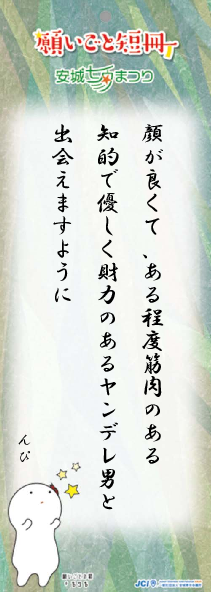 願いごと短冊
安城七夕まつり
顔が良くて、ある程度筋肉のある
知的で優しく財力のあるヤンデレ男と
出会えますように
んぴ
JCI